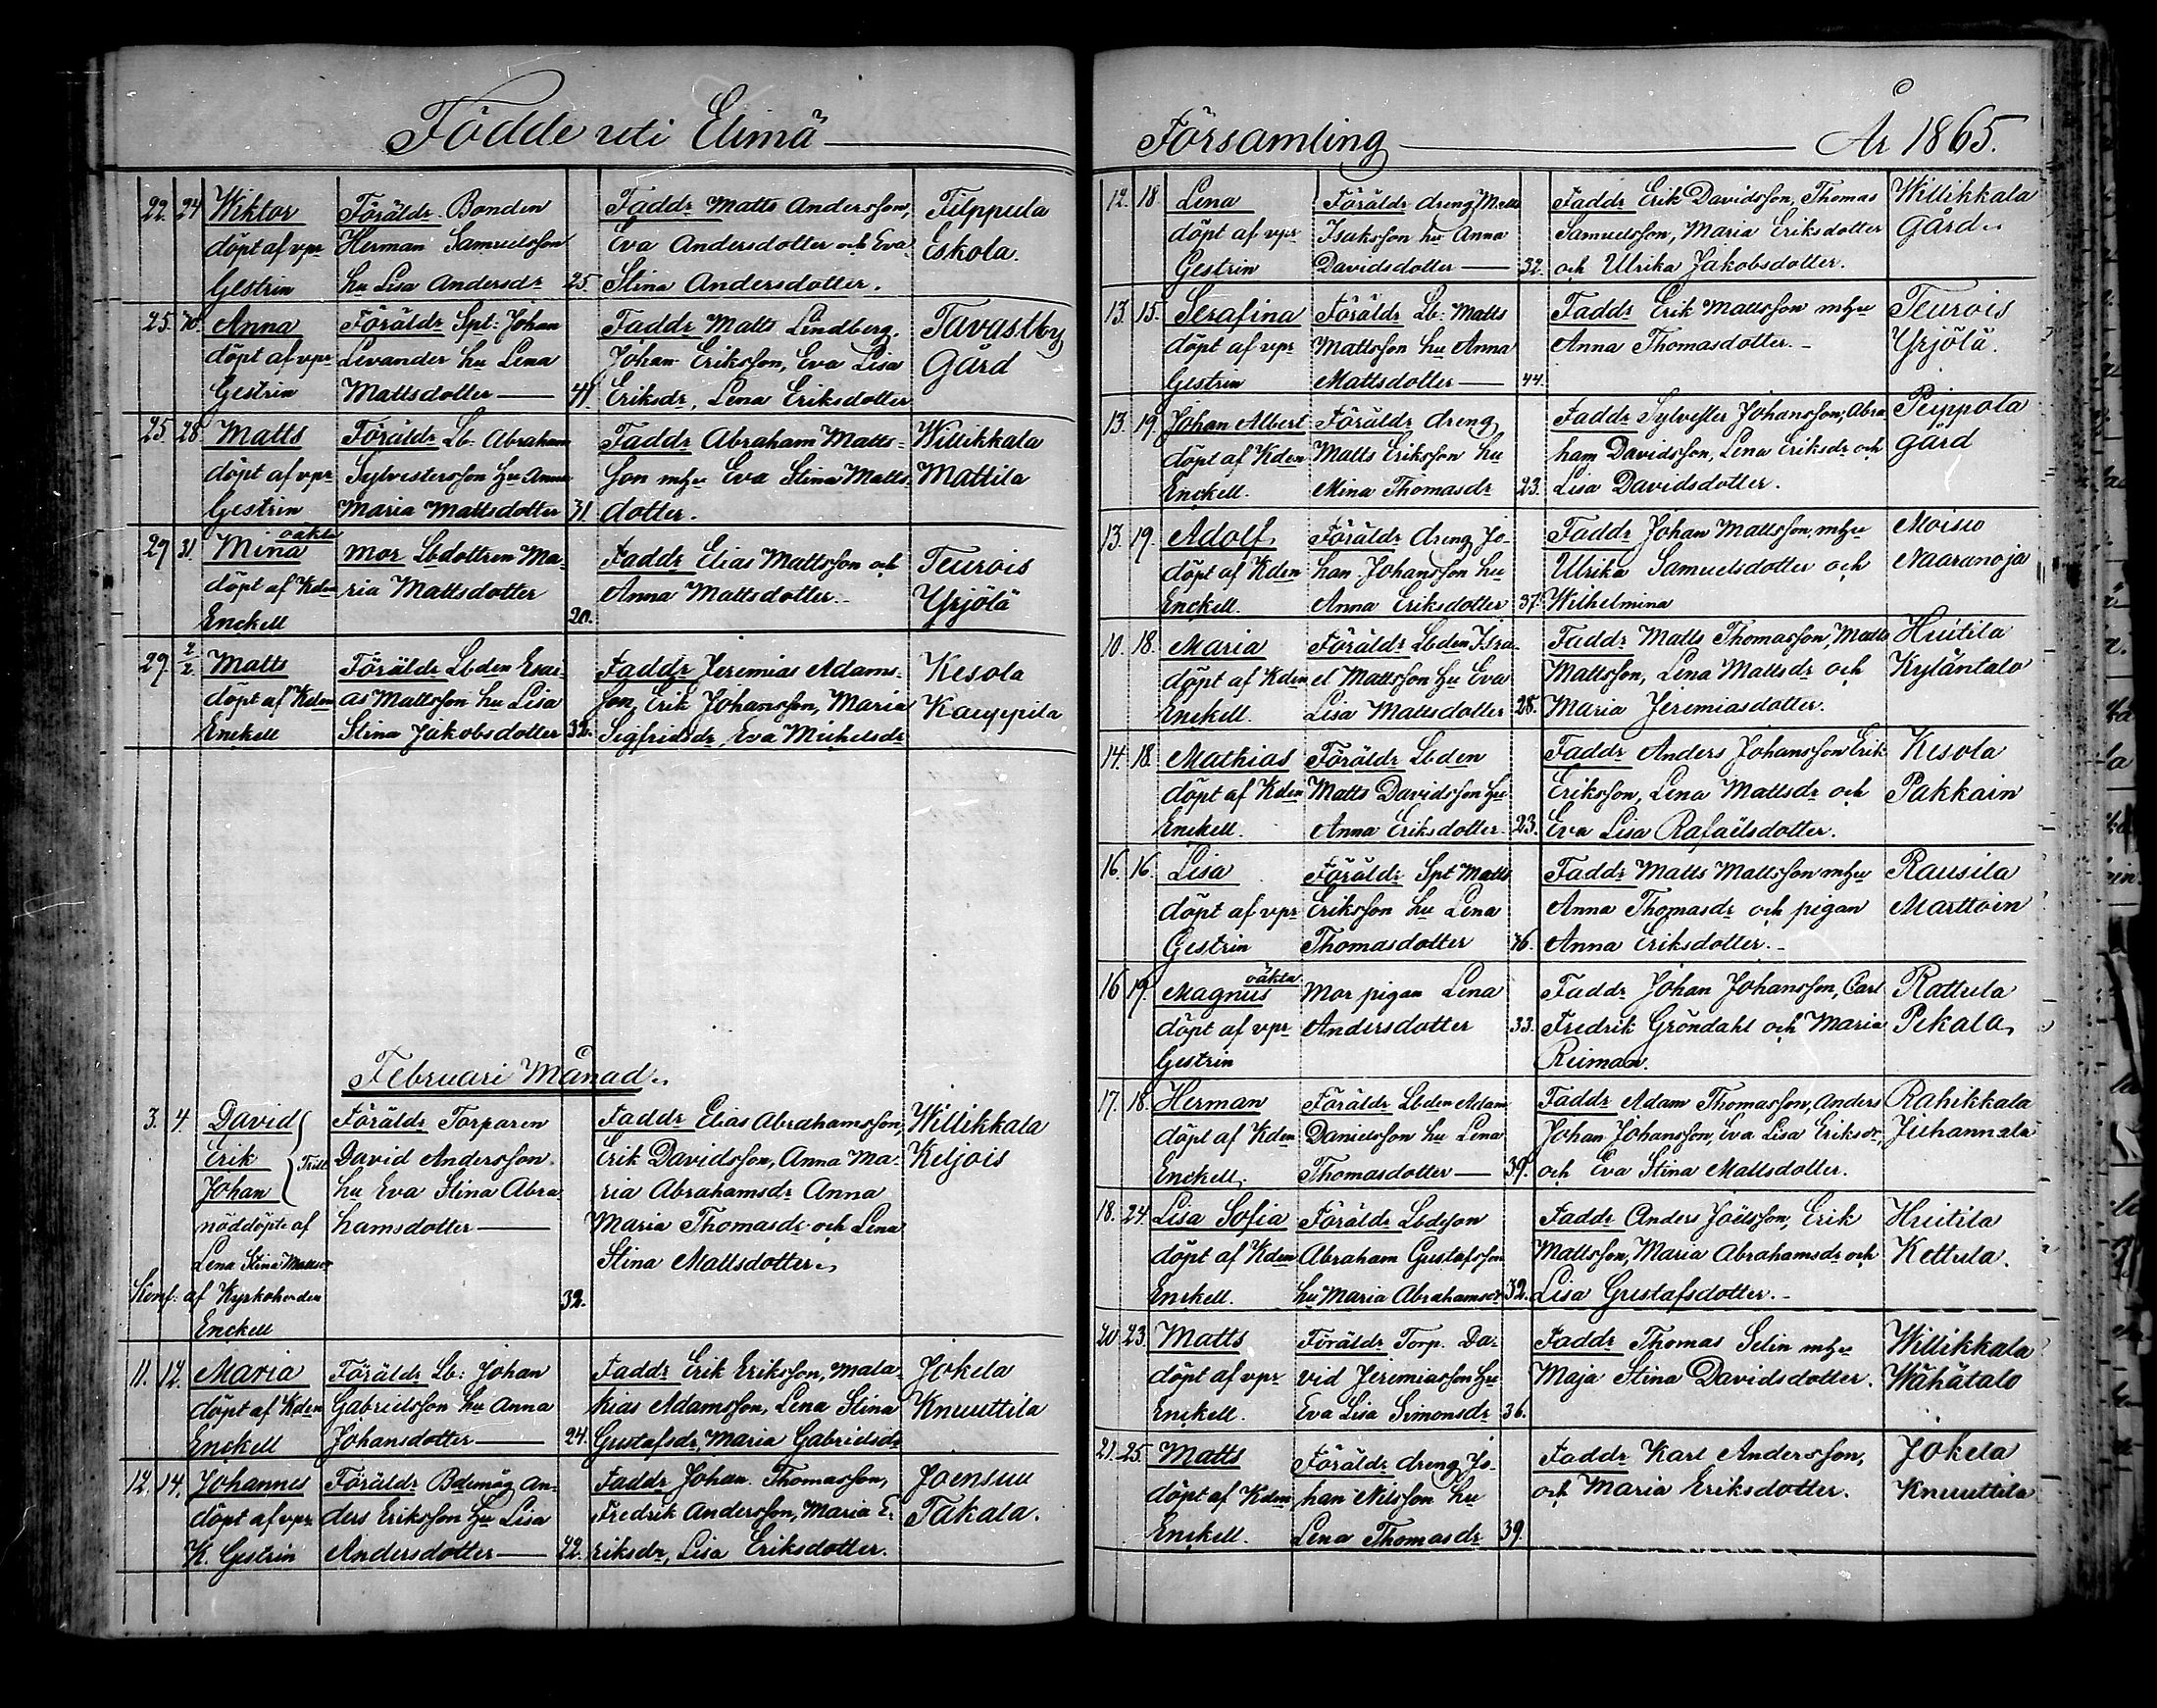 Födde uti Elimä
22. 24 Wiktor Föräldr Bonden Faddr Matts Andersson, Filppula
döpt af vpr Herman Samuelsson Eva Andersdotter och Eva Eskola.
Gestrin hu Lisa Andersdr 25. Stina Andersdotter.
25. Anna Föräldr Spt: Johan Faddr Matts Lindberg, Tavastby
döpt af vpr Levander hu Lena Johan Eriksson, Eva Lisa Gård
Gestrin Mattsdotter 41. Eriksdr, Lena Eriksdotter
25. 28. Matts Föräldr Lb. Abraham Faddr Abraham Matts- Willikkala
döpt af vpr Sylvestersson hu Anna son mhu Eva Stina Matts- Mattila
Gestrin Maria Mattsdotter 31. dotter.
oäkta
29 31. Mina mor Lbdottren Ma- Faddr Elias Mattsson och Teurois
döpt af Kden ria Mattsdotter Anna Mattsdotter. Yrjölä
Enckell 20.
29. 2/2. Matts Föräldr Lbden Esai- Faddr Jeremias Adams- Kesola
döpt af Kden as Mattsson hu Lisa son, Erik Johansson, Maria Kauppila
Enckell Stina Jakobsdotter 32. Sigfridsdr, Eva Michelsdr
Februari Månad.
3. 4. David Föräldr Torparen Faddr Elias Abrahamsson, Willikkala
Erik Trill David Andersson Erik Davidsson, Anna Ma- Keljois
Johan hu Eva Stina Abra ria Abrahamsdr Anna
nöddöpte af hamsdotter Maria Thomasdr och Lena
Lena Stina Mattsdr Stina Mattsdotter.
Konf: af Kyrkoherden 32.
Enckell
11. 12. Maria Föräldr Lb: Johan Faddr Erik Eriksson, Mala- Jokela
döpt af Kden Gabrielsson hu Anna kias Adamsson, Lena Stina Knuuttila
Enckell Johansdotter 24. Gustafsdr, Maria Gabrielsdr
12. 14. Johannes Föräldr Bdemåg An- Faddr Johan Thomasson, Joensuu
döpt af vpr ders Eriksson hu Lisa Fredrik Andersson, Maria E- Takala.
K. Gestrin Andersdotter 22. riksdr, Lisa Eriksdotter.
Församling År 1865.
12. 18. Lena Föräldr dreng Matts Faddr Erik Davidsson, Thomas Willikkala
döpt af vpr Isaksson hu Anna Samuelsson, Maria Eriksdotter gård.
Gestrin Davidsdotter 32. och Ulrika Jakobsdotter.
13. 15. Serafina Föräldr Lb. Matts Faddr Erik Mattsson mhu Teurois
döpt af vpr Mattsson hu Anna Anna Thomasdotter. Yrjölä.
Gestrin Mattsdotter 44.
13. 19. Johan Albert Föräldr dreng Faddr Sylvester Johansson, Abra Peippola
döpt af Kden Matts Eriksson hu ham Davidsson, Lena Eriksdr och gård
Enckell. Mina Thomasdr 23. Lisa Davidsdotter.
13. 19. Adolf Föräldr dreng Jo- Faddr Johan Mattsson, mhu Moisio
döpt af Kden han Johansson hu Ulrika Samuelsdotter och Naaranoja
Enckell. Anna Eriksdotter 37. Wilhelmina
10. 18. Maria Föräldr Lbden Isra- Faddr Matts Thomasson, Matts Huitila
döpt af Kden el Mattsson hu Eva Mattsson, Lena Mattsdr och Kyläntalo
Enckell. Lisa Mattsdotter 28. Maria Jeremiasdotter.
14. 18. Mathias Föräldr Lbden Faddr Anders Johansson Erik Kesola
döpt af Kden Matts Davidsson hu Eriksson, Lena Mattsdr och Pakkain
Enckell. Anna Eriksdotter 23. Eva Lisa Rafaëlsdotter.
16. 16. Lisa Föräldr Spt Matts Faddr Matts Mattsson mhu Rausila
döpt af vpr Eriksson hu Lena Anna Thomasdr och pigan Marttoin
Gestrin Thomasdotter Anna Eriksdotter.
oäkta
16 19. Magnus Mor pigan Lena Faddr Johan Johansson, Carl Rattula
döpt af vpr Andersdotter 33. Fredrik Gröndahl och Maria Pekala
Gestrin Reiman.
17. 18. Herman Föräldr Lbden Adam Faddr Adam Thomasson, Anders Rahikkala
döpt af Kden Danielsson hu Lena Johan Johansson, Eva Lisa Eriksdr, Juhannala
Enckell. Thomasdotter 39. och Eva Stina Mattsdotter.
18. 24. Lisa Sofia Föräldr Lbdeson Faddr Anders Joëlsson, Erik Huitila
döpt af Kden Abraham Gustafsson Mattsson, Maria Abrahamsdr och Kettula.
Enckell. hu Maria Abrahamsdr 32. Lisa Gustafsdotter.
20 23. Matts Föräldr Torp. Da- Faddr Thomas Selin mhu Willikkala
döpt af vpr vid Jeremiasson hu Maja Stina Davidsdotter. Wähätalo
Enckell. Eva Lisa Simonsdr 36.
21. 25. Matts Föräldr dreng Jo- Faddr Karl Andersson, Jokela
döpt af Kden han Nilsson hu och Maria Eriksdotter. Knuuttila
Enckell. Lena Thomasdr 39.